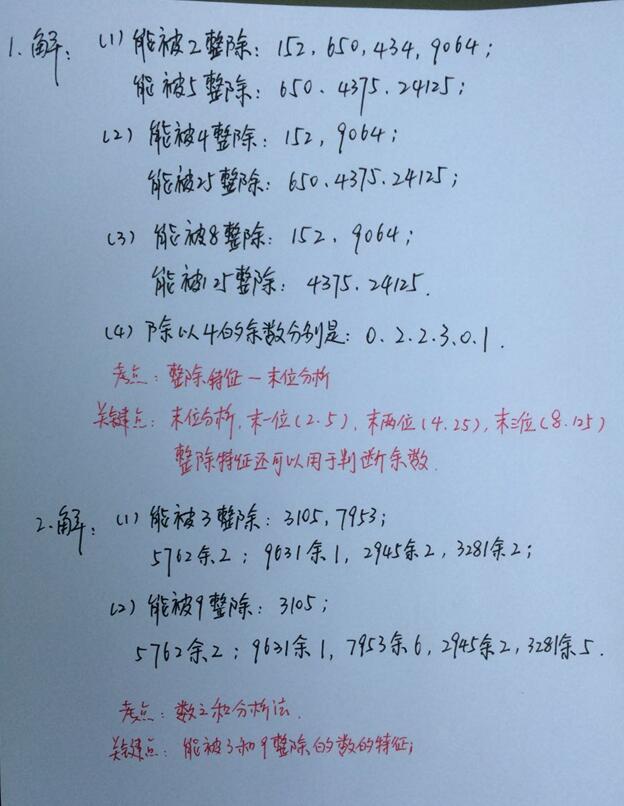 1.解: (1) 能被2整除: 152, 650, 434, 9064;
能被5整除: 650、4375、24125;
(2) 能被4整除: 152, 9064;
能被25整除: 650、4375、24125;
(3) 能被8整除: 152、9064;
能被125整除: 4375、24125.
(4) 除以4的余数分别是: 0、2、2、3、0、1.
考点: 整除特征—末位分析
关键点: 末位分析, 末一位(2、5), 末两位(4、25), 末三位(8、125)
整除特征还可以用于判断余数.
2.解: (1) 能被3整除: 3105, 7953;
5762余2; 9631余1, 2945余2, 3281余2;
(2) 能被9整除: 3105;
5762余2; 9631余1, 7953余6, 2945余2, 3281余5.
考点: 数之和分析法.
关键点: 能被3和9整除的数的特征;